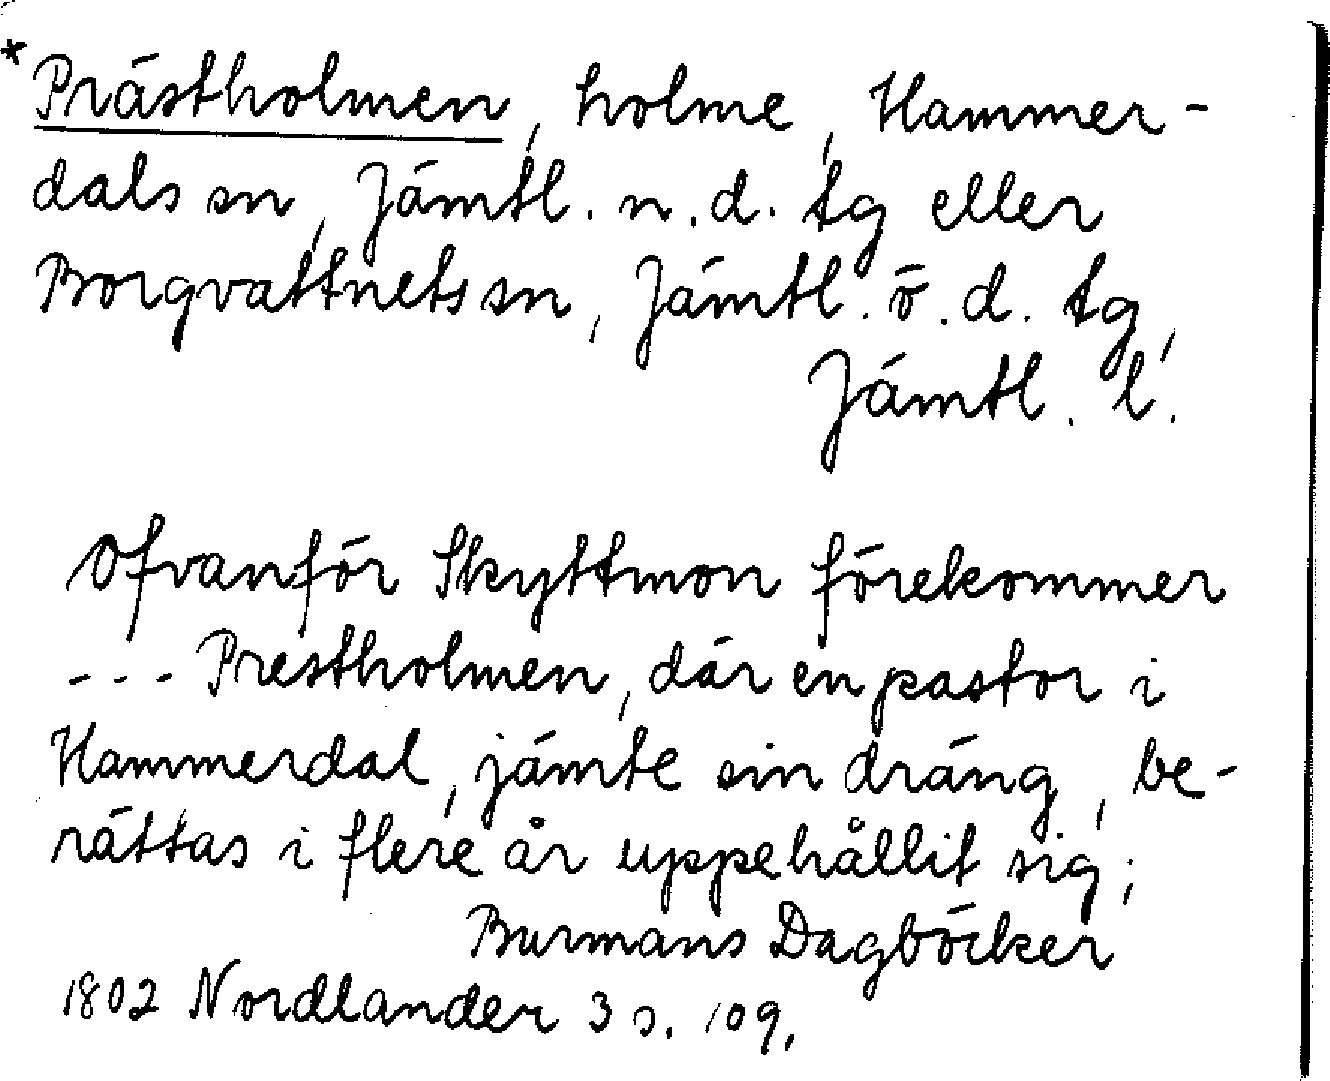 *Prästholmen, holme, Hammer-
dals sn, Jämtl. n. d. tg eller
Borgvattnets sn, Jämtl. ö. d. tg,
Jämtl. l.
Ofvanför Skyttmon förekommer
--- Prestholmen, där en pastor i
Hammerdal, jämte sin dräng, be-
rättas i flere år uppehållit sig;
Burmans Dagböcker
1802 Nordlander 3 s. 109.